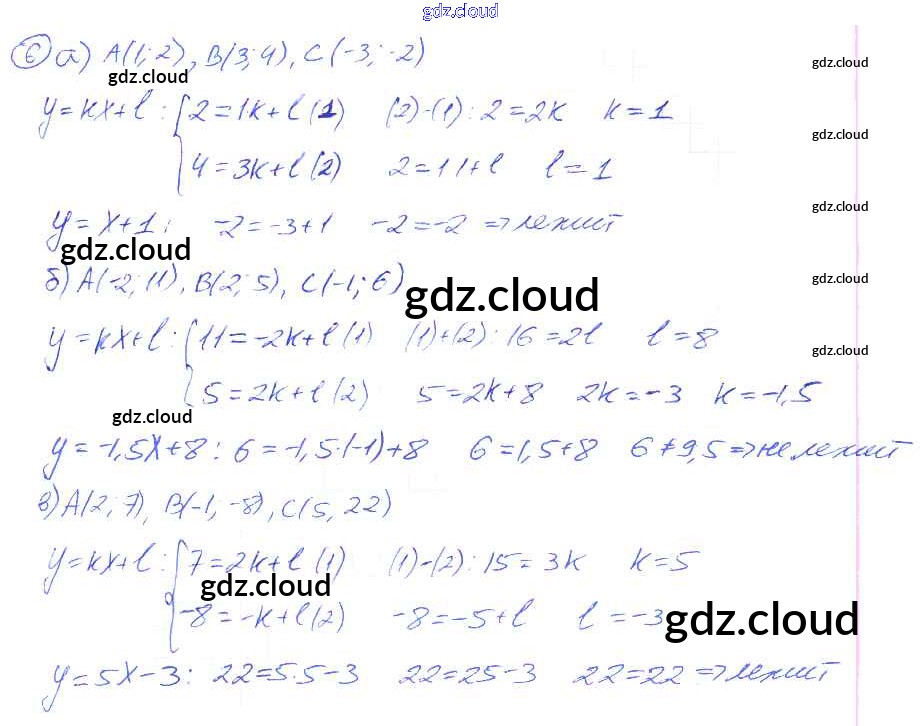 gdz.cloud
6 а) A(1; 2), B(3; 4), C(-3; -2)
gdz.cloud
gdz.cloud
y = kx + l : { 2 = 1k + l (1) (2)-(1): 2 = 2k k = 1
gdz.cloud
4 = 3k + l (2) 2 = 1·1 + l l = 1
gdz.cloud
y = x + 1 : -2 = -3 + 1 -2 = -2 => лежит
gdz.cloud
б) A(-2; 11), B(2; 5), C(-1; 6)
gdz.cloud
gdz.cloud
y = kx + l : { 11 = -2k + l (1) (1)+(2): 16 = 2l l = 8
gdz.cloud
5 = 2k + l (2) 5 = 2k + 8 2k = -3 k = -1,5
gdz.cloud
y = -1,5x + 8 : 6 = -1,5·(-1) + 8 6 = 1,5 + 8 6 ≠ 9,5 => не лежит
в) A(2; 7), B(-1, -8), C(5, 22)
y = kx + l : { 7 = 2k + l (1) (1)-(2): 15 = 3k k = 5
gdz.cloud
-8 = -k + l (2) -8 = -5 + l l = -3
gdz.cloud
y = 5x - 3 : 22 = 5·5 - 3 22 = 25 - 3 22 = 22 => лежит